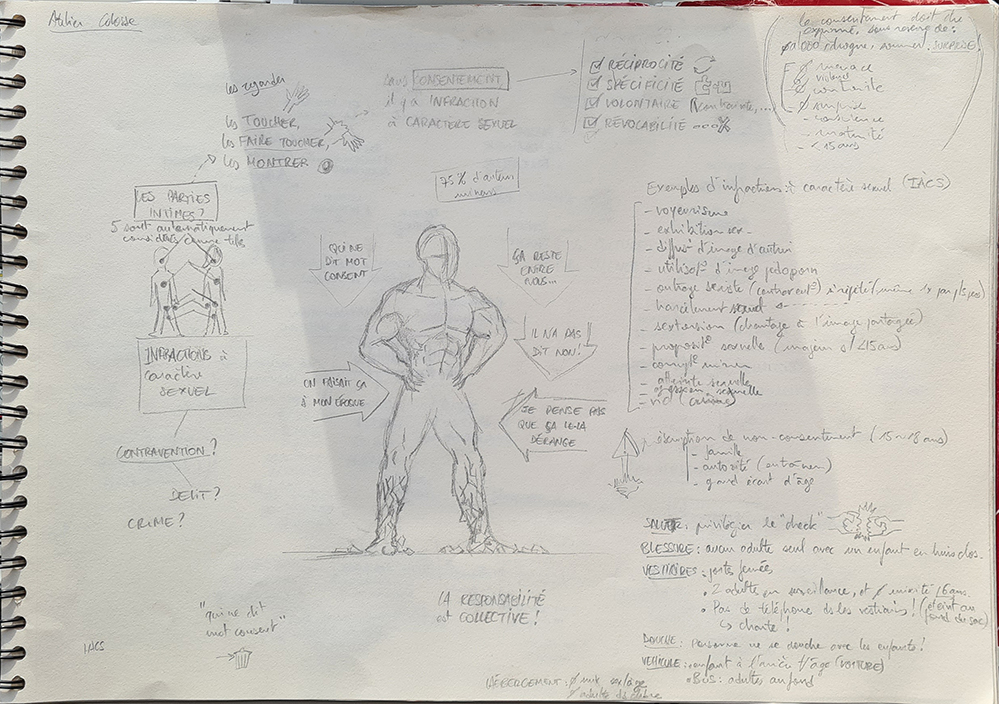 Atelier Colosse
le consentement doit être
exprimé, sans
SURPRISE
menace
violence
contrainte
surprise
- conscience
- maturité
- < 15 ans
les regarder
les TOUCHER,
les FAIRE TOUCHER,
les MONTRER
sans CONSENTEMENT,
il y a INFRACTION
à CARACTÈRE SEXUEL
RÉCIPROCITÉ
SPÉCIFICITÉ
VOLONTAIRE (contrainte, ...)
RÉVOCABILITÉ
75% d'auteurs
mineurs
LES PARTIES
INTIMES?
5 sont automatiquement
considérés comme tels
INFRACTIONS à
caractère
SEXUEL
CONTRAVENTION?
DÉLIT?
CRIME?
QUI NE
DIT MOT
CONSENT
ÇA RESTE
ENTRE
NOUS...
IL N'A PAS
DIT NON!
ON FAISAIT ÇA
À MON ÉPOQUE
JE PENSE PAS
QUE ÇA LE-LA
DÉRANGE
Exemples d'infractions à caractère sexuel (IACS)
- voyeurisme
- exhibition sex-
- diffus° d'image d'autrui
- utilisat° d'image pédoporn
- outrage sexiste (contravent°)
- harcèlement sexuel
- sextorsion (chantage à l'image partagée)
- proposit° sexuelle (majeur s/ <15 ans)
- corrupt° mineur
- atteinte sexuelle
- agression sexuelle
- viol (crime)
présomption de non-consentement (15~18 ans)
- famille
- autorité
- grand écart d'âge
SALUER: privilégier le "check"
BLESSURE: aucun adulte seul avec un enfant en huis clos.
VESTIAIRES: portes fermées
• 2 adultes en surveillance, et
• Pas de téléphone ds les vestiaires! (éteint au
fond du sac)
DOUCHE: personne ne se douche avec les enfants!
VEHICULE: enfant à l'arrière (VOITURE)
• Bus: adultes au fond
HÉBERGEMENT: Ø mix sex/âge
Ø adulte ds chbre
LA RESPONSABILITÉ
est COLLECTIVE!
"qui ne dit
mot consent"
IACS